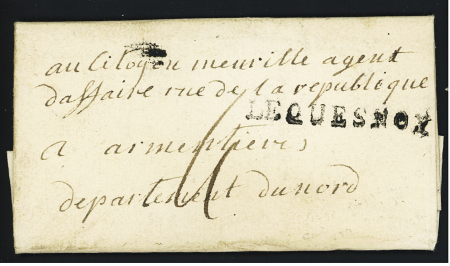 au Citoyen meurille agent
daffaire rue de la republique
LEQUESNOY
a armentieres
departement du nord